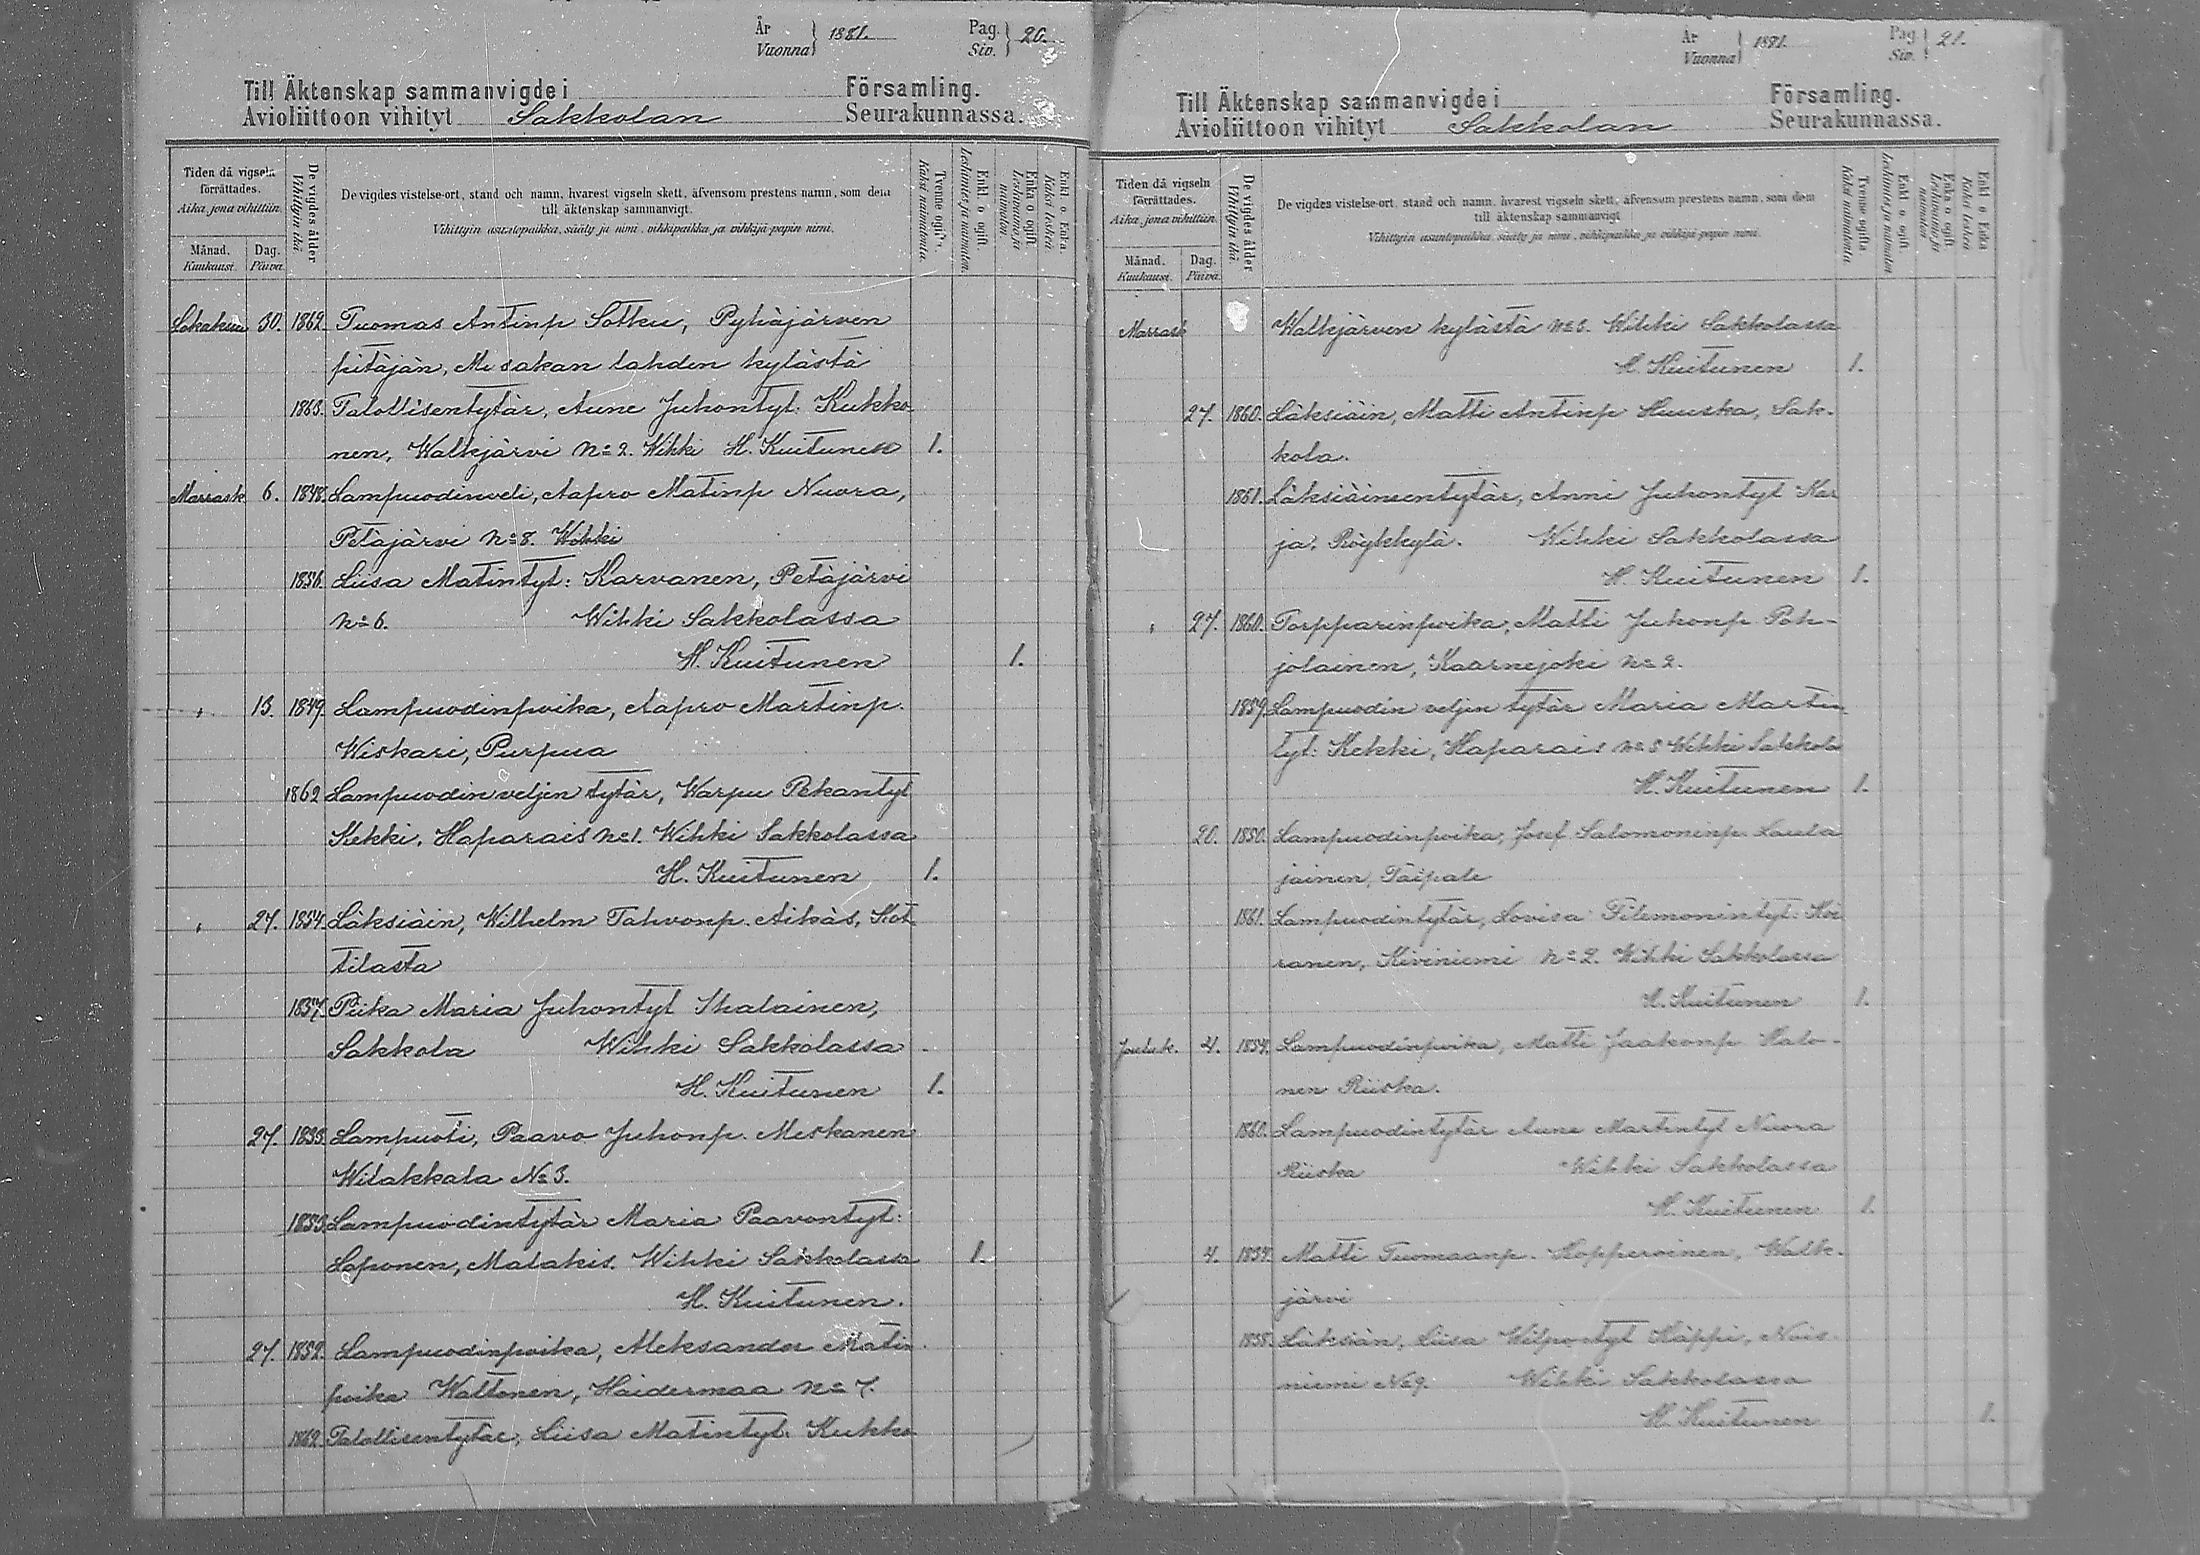 År
Vuonna } 1881. Pag.
Siv. } 20.
Till Äktenskap sammanvigde i Församling.
Avioliittoon vihityt Sakkolan Seurakunnassa.
Tiden då vigseln förrättades.
Aika, jona vihittiin.
Månad. Kuukausi. Dag. Päivä
De vigdes ålder
Vihittyin ikä.
De vigdes vistelse-ort, stånd och namn, hvarest vigseln skett, äfvensom prestens namn, som dem
till äktenskap sammanvigt.
Vihittyin asuntopaikka, sääty ja nimi, vihkipaikka ja vihkijä-papin nimi.
Tvenne ogifta.
Kaksi naimatonta.
Enkl. o. ogift.
Leskimies ja naimaton.
Enka o. ogift.
Leskivaimo ja naimaton.
Enkl. o. Enka.
Kaksi leskeä.
Lokakuu 30. 1862. Tuomas Antinp Sotku, Pyhäjärven
pitäjän, Musakan lahden kylästä
1863. Talollisentytär, Aune Juhontyt. Kukko-
nen, Walkjärvi No 2. Wihki H. Kuitunen 1.
Marrask 6. 1848. Lampuodinveli, Aapro Matinp Nuora,
Petäjärvi No 8. Wihki
1856. Liisa Matintyt: Karvanen, Petäjärvi
No 6. Wihki Sakkolassa
H. Kuitunen 1.
" 13. 1849. Lampuodinpoika, Aapro Martinp.
Wiskari, Purpua
1862 Lampuodin veljen tytär, Warpu Pekantyt
Kekki, Haparais No 1. Wihki Sakkolassa
H. Kuitunen 1.
" 27. 1854. Läksiäin, Wilhelm Tahvonp. Aikäs, Kot
tilasta
1857. Piika Maria Juhontyt Ihalainen,
Sakkola Wihki Sakkolassa
H. Kuitunen 1.
27. 1833. Lampuoti, Paavo Juhonp. Meskanen
Wilakkala No 3.
1853. Lampuodintytär Maria Paavontyt:
Loponen, Matakis. Wihki Sakkolassa 1.
H. Kuitunen.
27. 1852. Lampuodinpoika, Aleksander Matin
poika Waltonen, Haidermaa No 7.
1862 Talollisentytär, Liisa Matintyt. Kukko
År
Vuonna } 1881. Pag.
Siv. } 21.
Till Äktenskap sammanvigde i Församling.
Avioliittoon vihityt Sakkolan Seurakunnassa.
Tiden då vigseln förrättades.
Aika, jona vihittiin.
Månad. Kuukausi. Dag. Päivä.
De vigdes ålder
Vihittyin ikä.
De vigdes vistelse-ort, stånd och namn, hvarest vigseln skett, äfvensom prestens namn, som dem
till äktenskap sammanvigt
Vihittyin asuntopaikka, sääty ja nimi, vihkipaikka ja vihkijä-papin nimi.
Tvenne ogifta
Kaksi naimatonta.
Enkl. o. ogift
Leskimies ja naimaton
Enka o. ogift
Leskivaimo ja naimaton
Enkl. o. Enka
Kaksi leskeä
Marrask Walkjärven kylästä No 3. Wihki Sakkolassa
H. Kuitunen 1.
27. 1860. Läksiäin, Matti Antinp Huuska, Sak-
kola.
1861. Läksiäinsentytär, Anni Juhontyt Kar
ja, Röykkylä. Wihki Sakkolassa
H. Kuitunen 1.
" 27. 1860. Torpparinpoika, Matti Juhonp. Poh-
jolainen, Kaarnejoki No 2.
1859. Lampuodin veljen tytär Maria Martin
tyt: Kekki, Haparais No 5 Wihki Sakkola
H. Kuitunen 1.
20. 1850. Lampuodinpoika, Josef Salomoninp. Laula
jainen, Taipale
1861. Lampuodintytär, Lovisa Filemonintyt: Koi
ranen, Kiviniemi No 2. Wihki Sakkolassa
H. Kuitunen 1.
Jouluk. 4. 1854. Lampuodinpoika, Matti Jaakonp Halo-
nen Riiska.
1860. Lampuodintytär Aune Martintyt Nuora
Riiska Wihki Sakkolassa
H. Kuitunen 1.
4. 1834. Matti Tuomaanp. Hopperoinen, Walk-
järvi
1838. Läksiän, Liisa Wilpontyt Häppi, Nois
niemi No 9. Wihki Sakkolassa
H. Kuitunen 1.